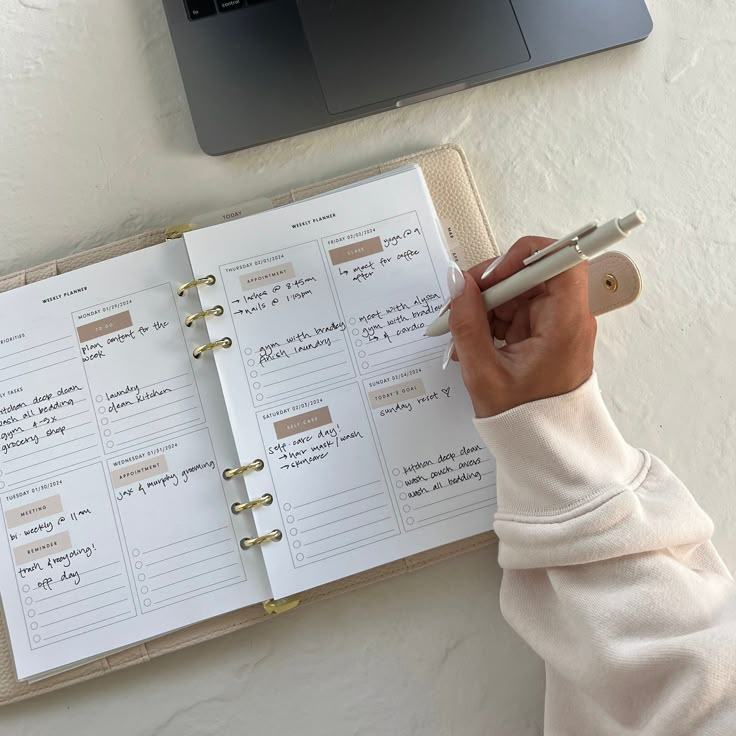 control
TODAY
MAR
WEEKLY PLANNER
PRIORITIES
Y TASKS
kitchen deep clean
wash all bedding
gym
grocery shop
MONDAY 01/29/2024
TO-DO
plan content for the
week
laundry
clean kitchen
TUESDAY 01/30/2024
MEETING
bi-weekly @ 11am
REMINDER
trash & recycling!
off day
WEDNESDAY 01/31/2024
APPOINTMENT
jax & murphy grooming
WEEKLY PLANNER
THURSDAY 02/01/2024
APPOINTMENT
→ lashes @ 8:45am
→ nails @ 1:15pm
gym with bradley
finish laundry
FRIDAY 02/02/2024
CLASS
yoga @ 9
→ meet for coffee
meet with alyssa
gym with bradley
↳ & cardio
SATURDAY 02/03/2024
SELF CARE
self-care day!
→ hair mask/wash
→ skincare
SUNDAY 02/04/2024
TODAY'S GOAL
sunday reset ♡
kitchen deep clean
wash couch covers
wash all bedding